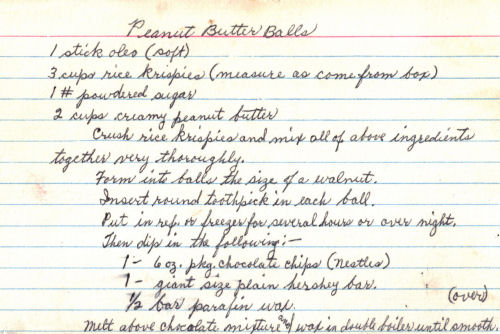 Peanut Butter Balls
1 stick oleo (soft)
3 cups rice krispies (measure as come from box)
1 # powdered sugar
2 cups creamy peanut butter
Crush rice krispies and mix all of above ingredients
together very thoroughly.
Form into balls the size of a walnut.
Insert round toothpick in each ball.
Put in ref. or freezer for several hours or over night.
Then dip in the following:-
1- 6 oz. pkg. chocolate chips (Nestles)
1- giant size plain hershey bar.
1/2 bar parafin wax.
(over)
Melt above chocolate mixture and wax in double boiler until smooth.